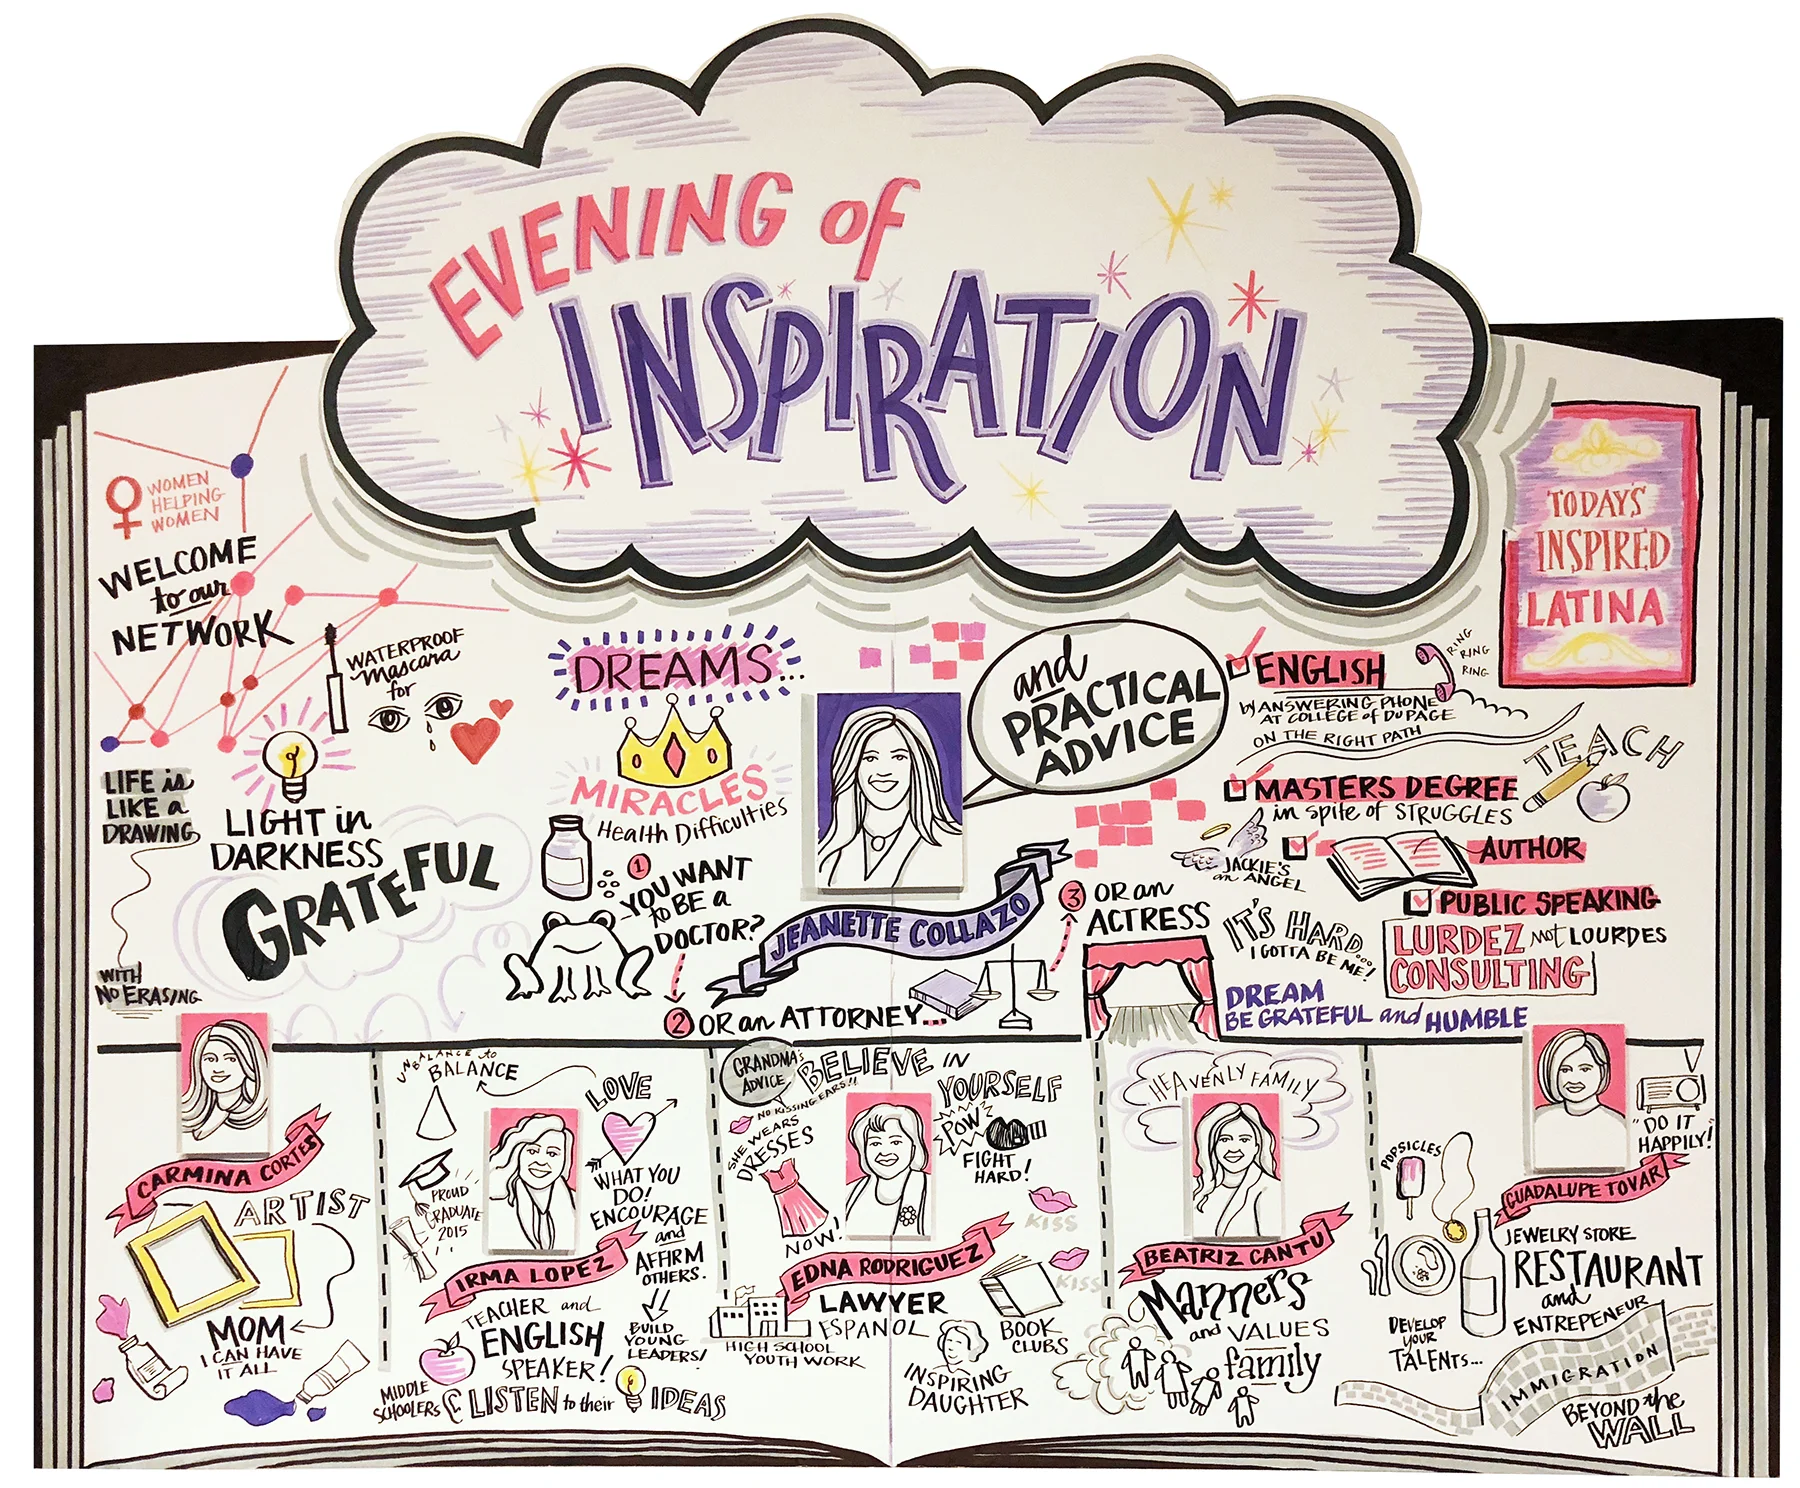 EVENING of
INSPIRATION
WOMEN
HELPING
WOMEN
WELCOME
to our
NETWORK
WATERPROOF
mascara
for
LIFE is
LIKE a
DRAWING
WITH
NO ERASING
LIGHT in
DARKNESS
GRATEFUL
DREAMS...
MIRACLES
Health Difficulties
1
YOU WANT
to BE a
DOCTOR?
2 OR an ATTORNEY...
3 OR an
ACTRESS
JEANETTE COLLAZO
and
PRACTICAL
ADVICE
ENGLISH
by ANSWERING PHONE
AT COLLEGE of DUPAGE
ON THE RIGHT PATH
RING
RING
RING
TEACH
MASTERS DEGREE
in spite of STRUGGLES
JACKIE'S
an ANGEL
AUTHOR
PUBLIC SPEAKING
IT'S HARD...
I GOTTA BE ME!
LURDEZ not LOURDES
CONSULTING
DREAM
BE GRATEFUL and HUMBLE
TODAY'S
INSPIRED
LATINA
CARMINA CORTES
ARTIST
MOM
I CAN HAVE
IT ALL
UNBALANCE to
BALANCE
LOVE
PROUD
GRADUATE
2015
WHAT YOU
DO!
ENCOURAGE
and
AFFIRM
OTHERS.
BUILD
YOUNG
LEADERS!
IRMA LOPEZ
TEACHER and
ENGLISH
SPEAKER!
MIDDLE
SCHOOLERS
LISTEN to their IDEAS
GRANDMA'S
ADVICE
BELIEVE IN
YOURSELF
NO KISSING EARS!!
SHE WEARS
DRESSES
NOW!
POW
FIGHT
HARD!
KISS
KISS
EDNA RODRIGUEZ
LAWYER
ESPANOL
HIGH SCHOOL
YOUTH WORK
INSPIRING
DAUGHTER
BOOK
CLUBS
HEAVENLY FAMILY
BEATRIZ CANTU
Manners
and VALUES
family
"DO IT
HAPPILY!"
POPSICLES
GUADALUPE TOVAR
JEWELRY STORE
RESTAURANT
and
ENTREPENEUR
DEVELOP
YOUR
TALENTS...
IMMIGRATION
BEYOND the
WALL